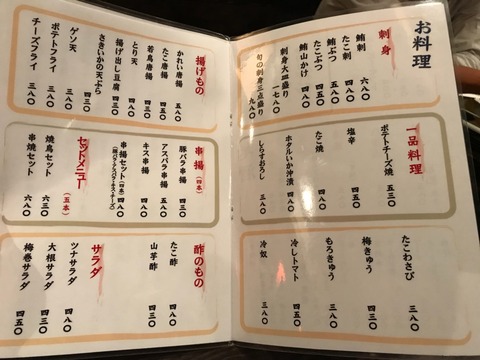 お料理
刺身
鮪刺 六八〇
たこ刺 四五〇
鮪ぶつ 五八〇
たこぶつ 四五〇
鮪山かけ 四八〇
刺身大皿盛り 一七八〇
旬の刺身三点盛り 九八〇
一品料理
ポテトチーズ焼 五三〇
塩辛 四五〇
たこ焼 四八〇
ホタルいか沖漬 四八〇
しらすおろし 三八〇
たこわさび 三八〇
梅きゅう 三八〇
もろきゅう 三八〇
冷しトマト 四五〇
冷奴 三八〇
揚げもの
かれい唐揚 五八〇
たこ唐揚 四八〇
若鳥唐揚 四五〇
とり天 四五〇
揚げ出し豆腐 四三〇
さきいかの天ぷら 四三〇
ゲソ天 三八〇
ポテトフライ 三八〇
チーズフライ 三八〇
串揚(四本)
豚バラ串揚 四五〇
アスパラ串揚 五八〇
キス串揚 四八〇
串揚セット(四本) 四八〇
(豚バラ・アスパラ・キス・チーズ)
セットメニュー(五本)
焼鳥セット 六三〇
串焼セット 六八〇
酢のもの
たこ酢 四八〇
山芋酢 四三〇
サラダ
ツナサラダ 四八〇
大根サラダ 四五〇
梅巻サラダ 四五〇